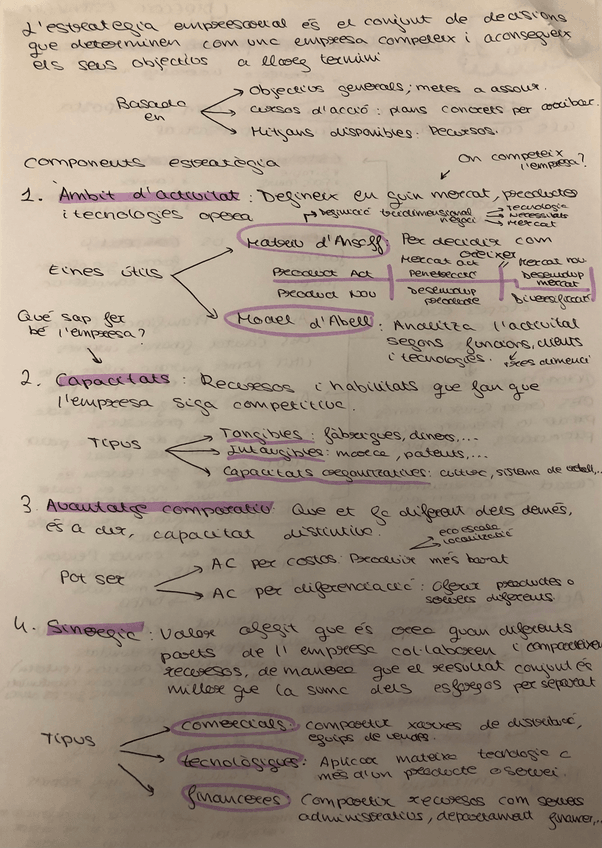 L'estrategia empresarial és el conjunt de decisions
que determinen com una empresa competeix i aconsegueix
els seus objectius a llarg termini
Basada en
Objectius generals; metes a assolir.
Cursos d'acció: plans concrets per arribar.
Mitjans disponibles. Recursos.
Components estratègia
On competeix l'empresa?
1. Àmbit d'activitat: Defineix en quin mercat, productes
i tecnologies opera
Definició tridimensional negoci
Tecnologia
Necessitats
Mercat
Eines útils
Matriu d'Ansoff: Per decidir com créixer
Mercat act // Mercat nou
Product Act Penetració Desenvolup mercat
Product Nou Desenvolup producte Diversificació
Model d'Abell: Analitza l'activitat
segons funcions, clients
i tecnologies.
tres dimenci
Què sap fer
bé l'empresa?
2. Capacitats: Recursos i habilitats que fan que
l'empresa siga competitiva.
Tipus
Tangibles: fàbriques, diners,...
Intangibles: marca, patents,...
Capacitats organitzatives: cultura, sistema de treball,...
3. Avantatge comparatiu. Que et fa diferent dels demés,
és a dir, capacitat distintiva.
eco escala
localització
Pot ser
AC per costos: Produir més barat
AC per diferenciació: Oferir productes o
serveis diferents.
4. Sinergia: Valor afegit que és crea quan diferents
parts de l'empresa col·laboren i comparteixen
recursos, de manera que el resultat conjunt és
millor que la suma dels esforços per separat
Tipus
comercials: compartir xarxes de distribució,
equips de vendes.
tecnològiques: Aplicar mateixa tecnologia a
més d'un producte o servei.
financeres Compartir recursos com serveis
administratius, departament financer,...